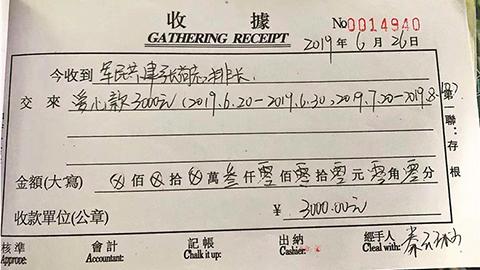 收據
GATHERING RECEIPT
No 0014940
2019 年 6 月 26 日
今收到 军民共建张
交來 爱心款3000元 (2019.6.20-2019.6.30, 2019.7.20-2019.8.
第一聯:存根
金額(大寫) ⊗佰⊗拾⊗萬叁仟零佰零拾零元零角零分
收款單位(公章) ¥ 3000.00元
核準 會計 記帳 出納 經手人
Approve: Accountant: Chalk it up: Cashier: Cleal with: 秦